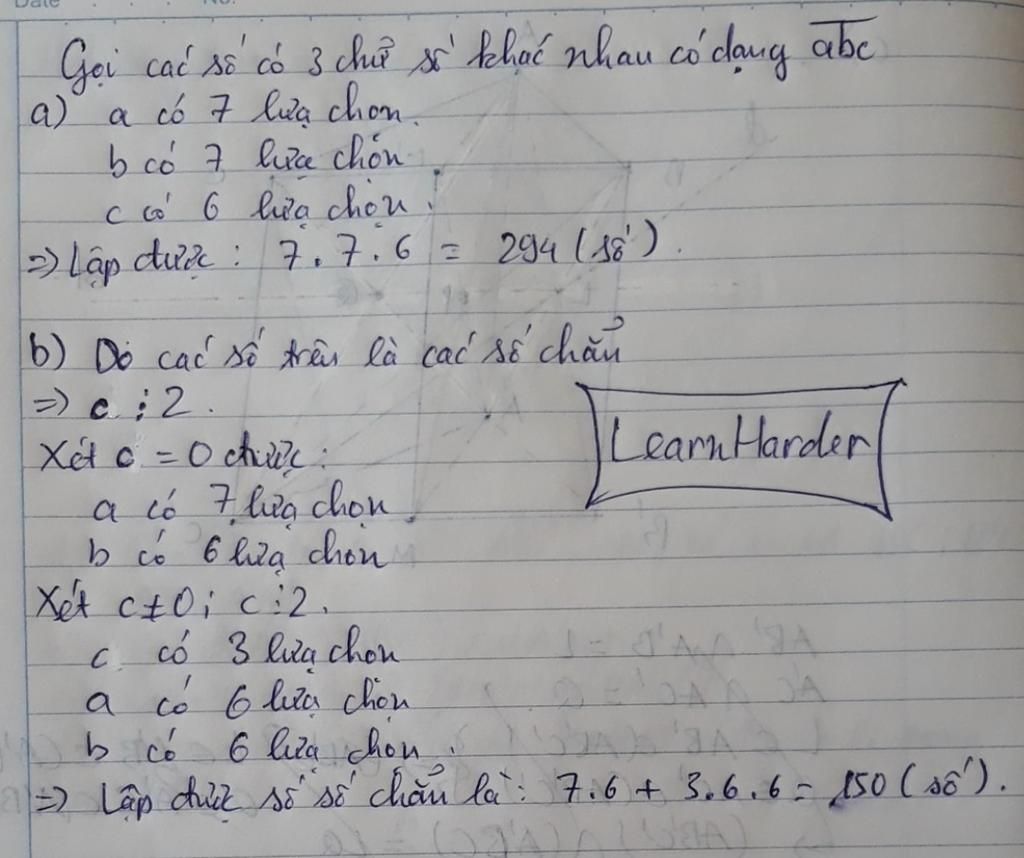 Gọi các số có 3 chữ số khác nhau có dạng abc
a) a có 7 lựa chọn.
b có 7 lựa chọn
c có 6 lựa chọn.
=> Lập được: 7.7.6 = 294 (số).
b) Do các số trên là các số chẵn
=> c ⋮ 2.
LearnHarder
Xét c = 0 được:
a có 7 lựa chọn
b có 6 lựa chọn
Xét c ≠ 0; c ⋮ 2.
c có 3 lựa chọn
a có 6 lựa chọn
b có 6 lựa chọn.
=> Lập được số số chẵn là: 7.6 + 3.6.6 = 150 (số).